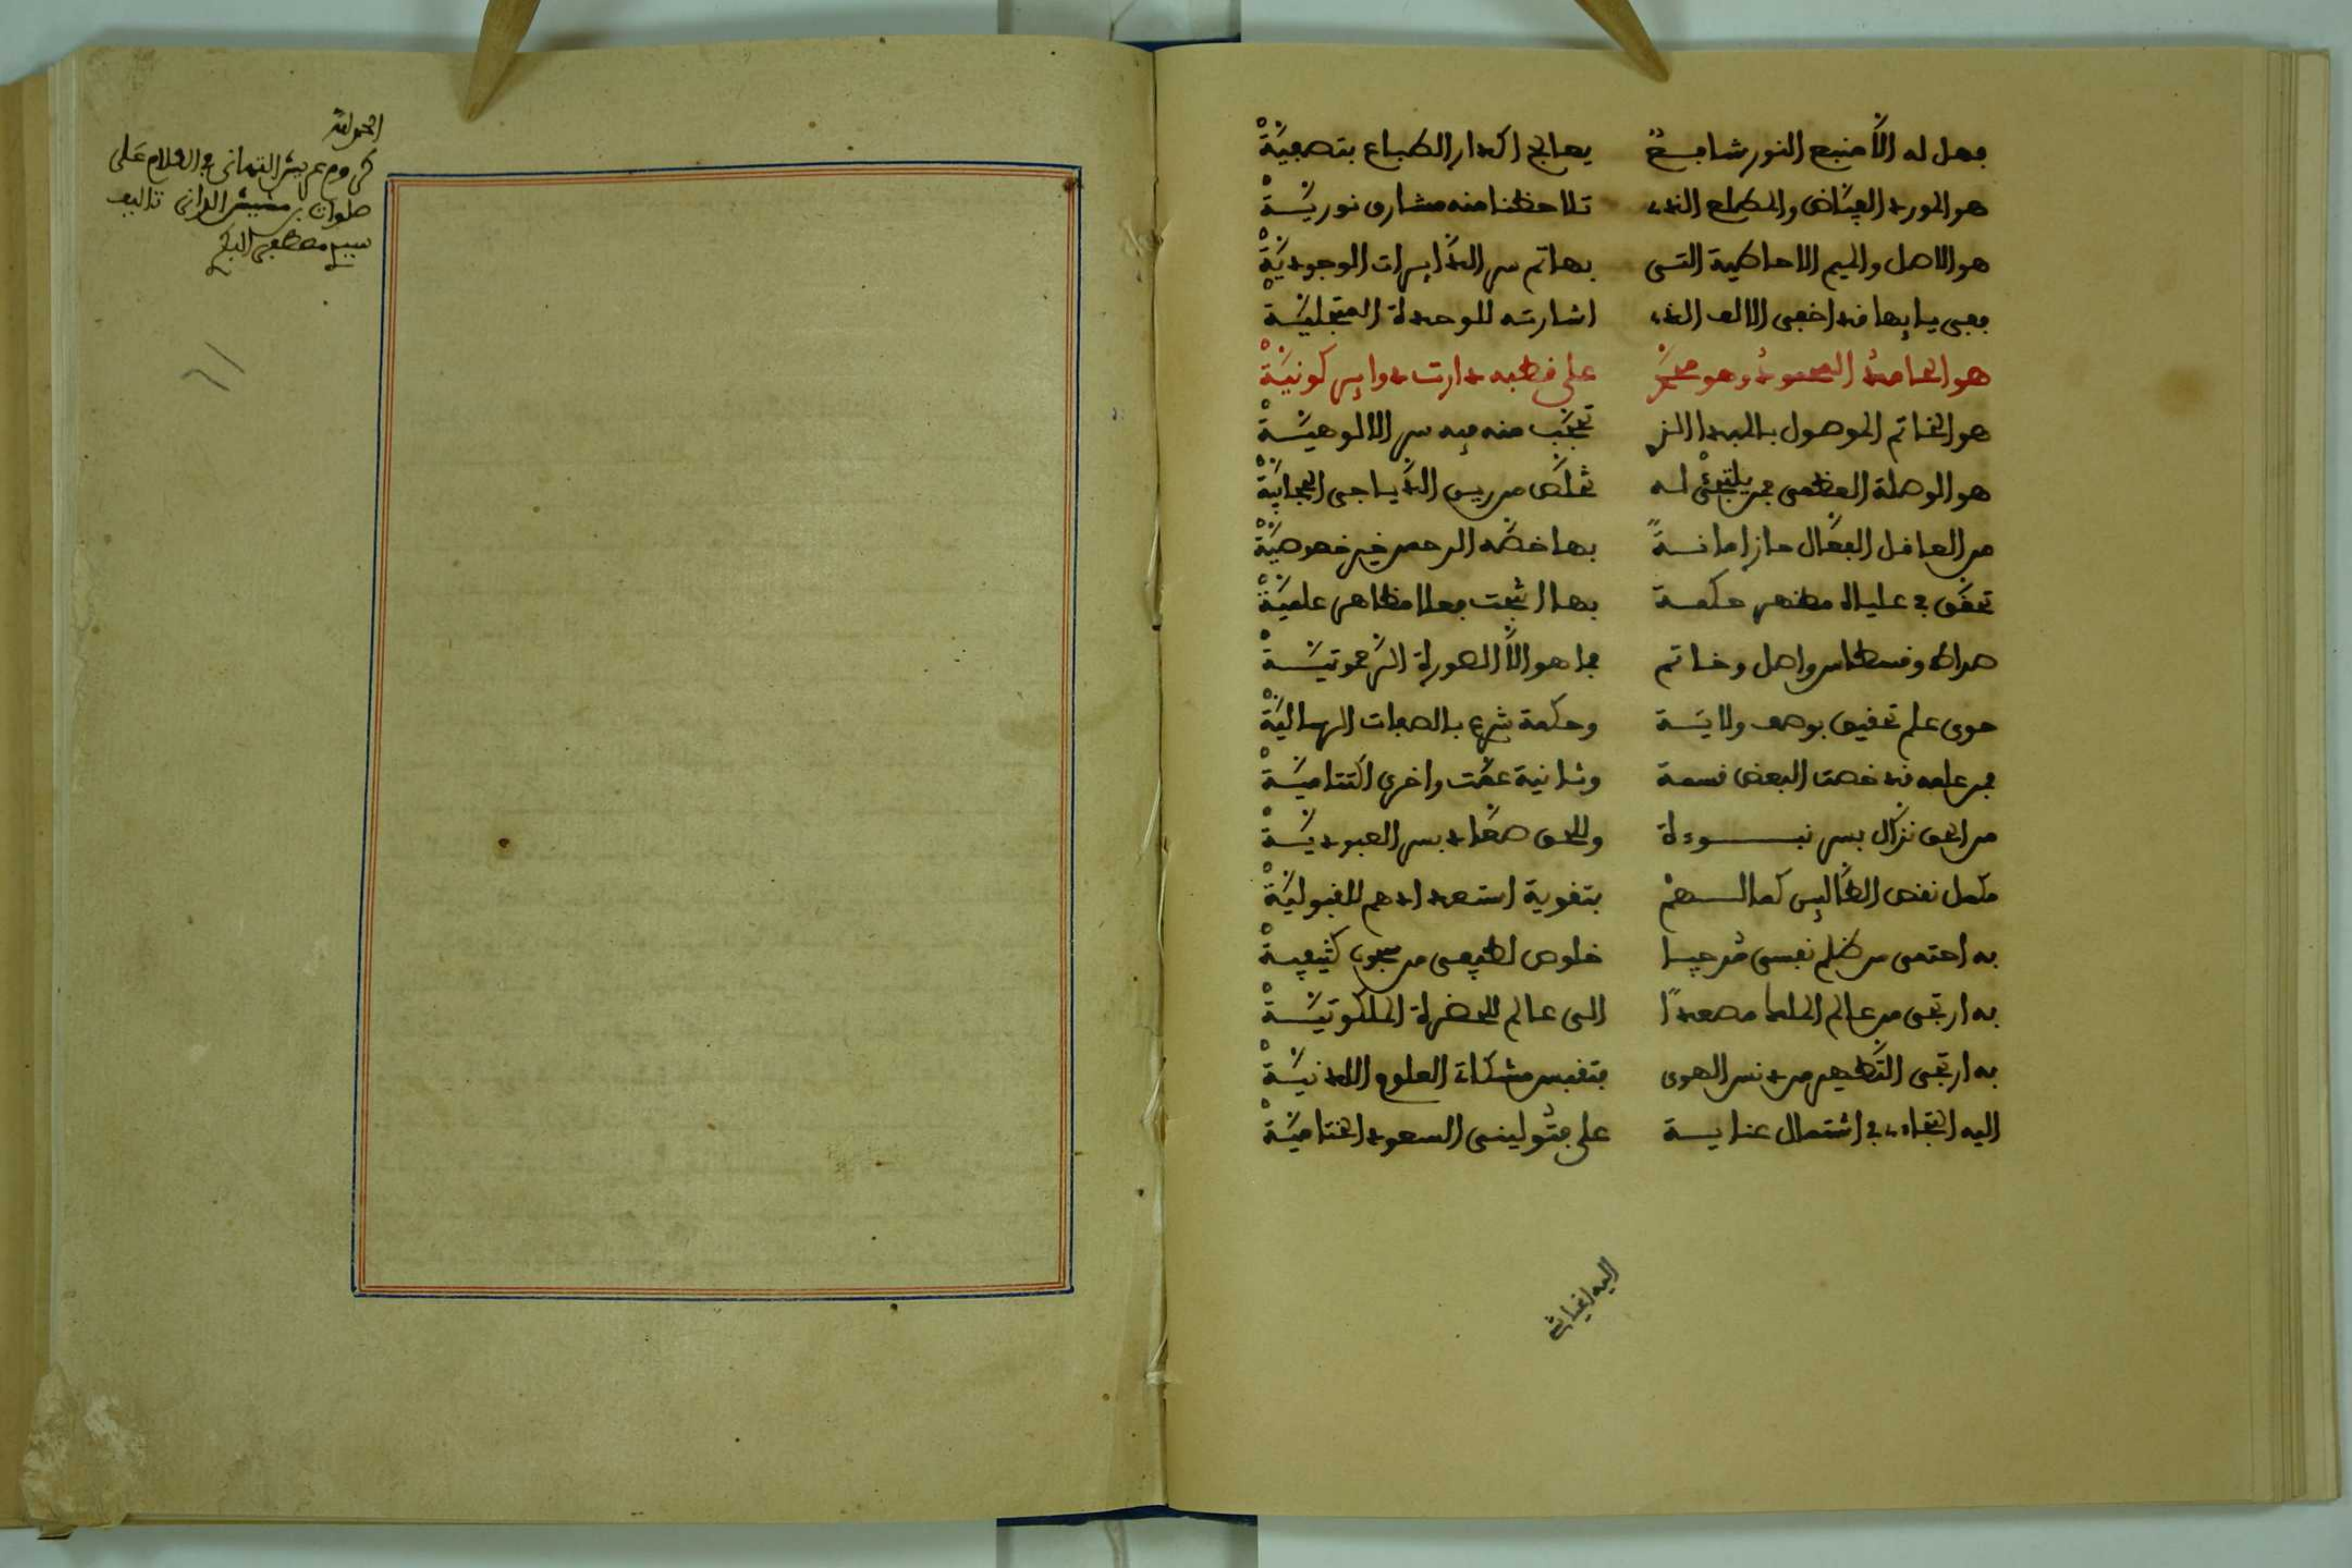 فهل له الا منبع النور شافع يعالج اكدار الطباع بتصفية
هو المورد الفياض والمطلع الذي تلاحظنا منه مشارق نورية
هو الاصل والميم الاحاطية التي بها تم سر الدايرات الوجودية
ففي يايها قد اخفى الالف الذي اشارته للوحدة المتجلية
هو الحامد المحمود وهو على قطبه دارت دواير كونية
هو الخاتم الموصول بالمبدا منه فيه سر الالوهية
هو الوصلة العظمى فمن يلتجئ له تخلص من الدياجي الحجابية
من العاقل الفعال حاز امانة بها خصه الرحمن خير خصوصية
تحقق في علياه مظهر حكمة بها مظاهر علمية
صراط وقسطاس واصل وخاتم فما هو الا الصورة الرحموتية
حوى علم تحقيق بوصف ولاية وحكمة شرع بالصفات الرسالية
فمن علمه قد خصت البعض قسمة وثانية عمت واخرى اكتتامية
من الحق نزال بسر نبوءة وللحق صعاد بسر العبودية
مكمل نقص الطالبين كمالهم بتقوية استعدادهم للقبولية
به احتمي من ظلم نفسي مرجيا خلوص لطيفي من سجون كثيفية
به ارتجي من عالم الملك مصعدا الى عالم للحضرة الملكوتية
به ارتجي التطهير من دنس الهوى فتقبس مشكاة العلوم اللدنية
اليه التجاءي في اشتمال عناية علي فتوليني السعود الختامية
اليه
الحمد لله
كروم عريش التهاني في الكلام على
صلوات بن مشيش الداني تاليف
سيدي مصطفى البكري